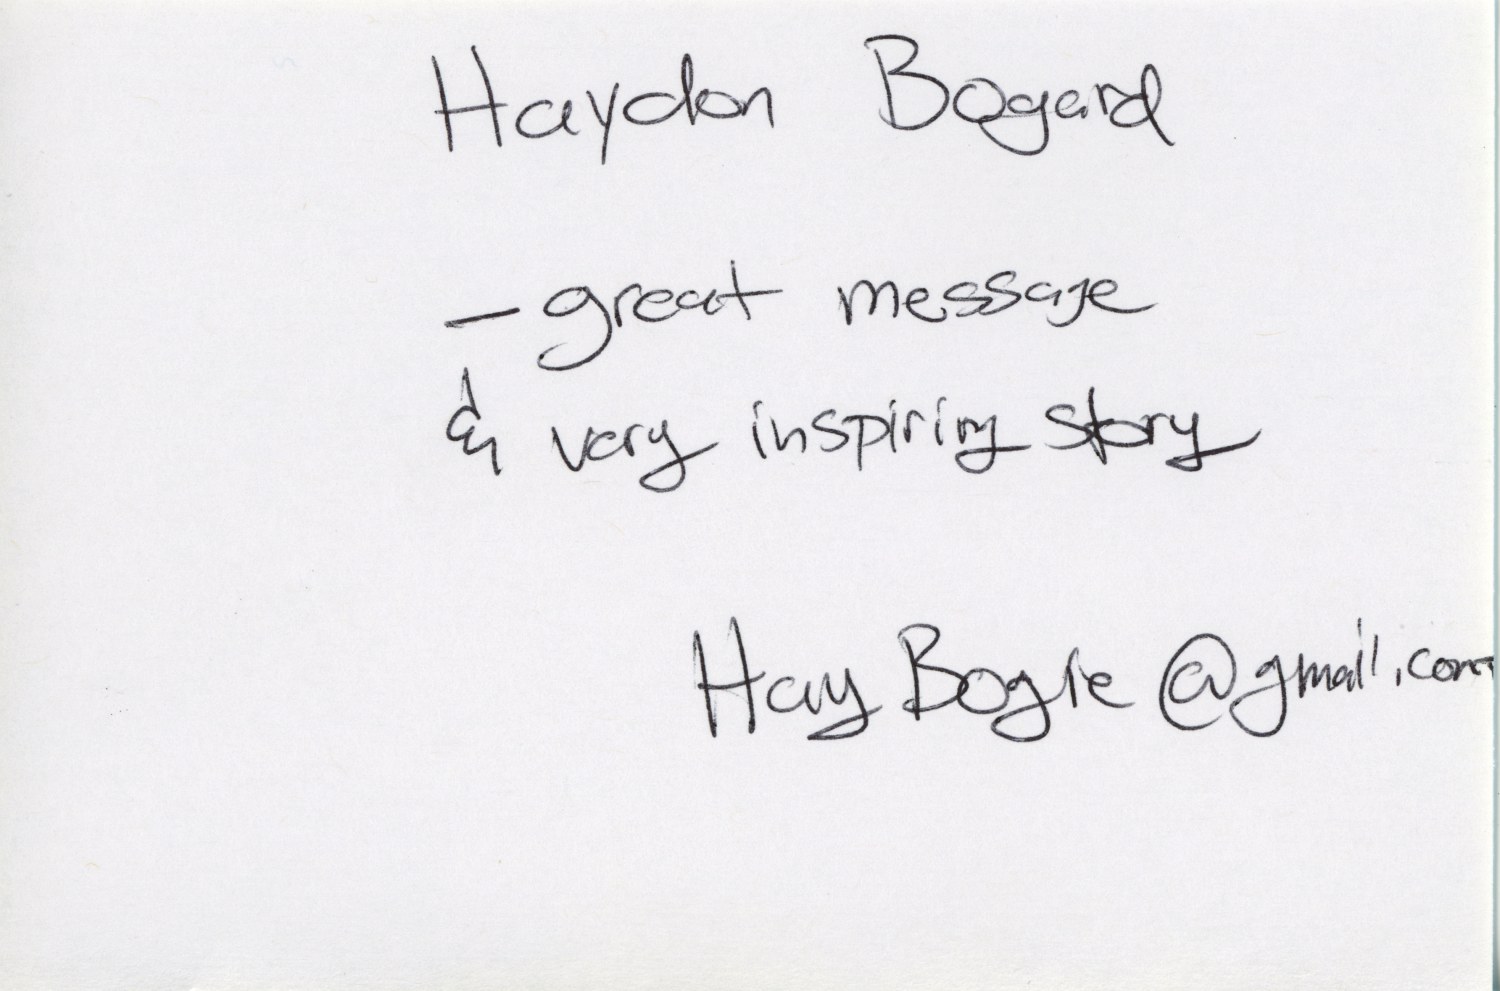 Haydon Bogard
- great message
& very inspiring story
HayBogie@gmail.com